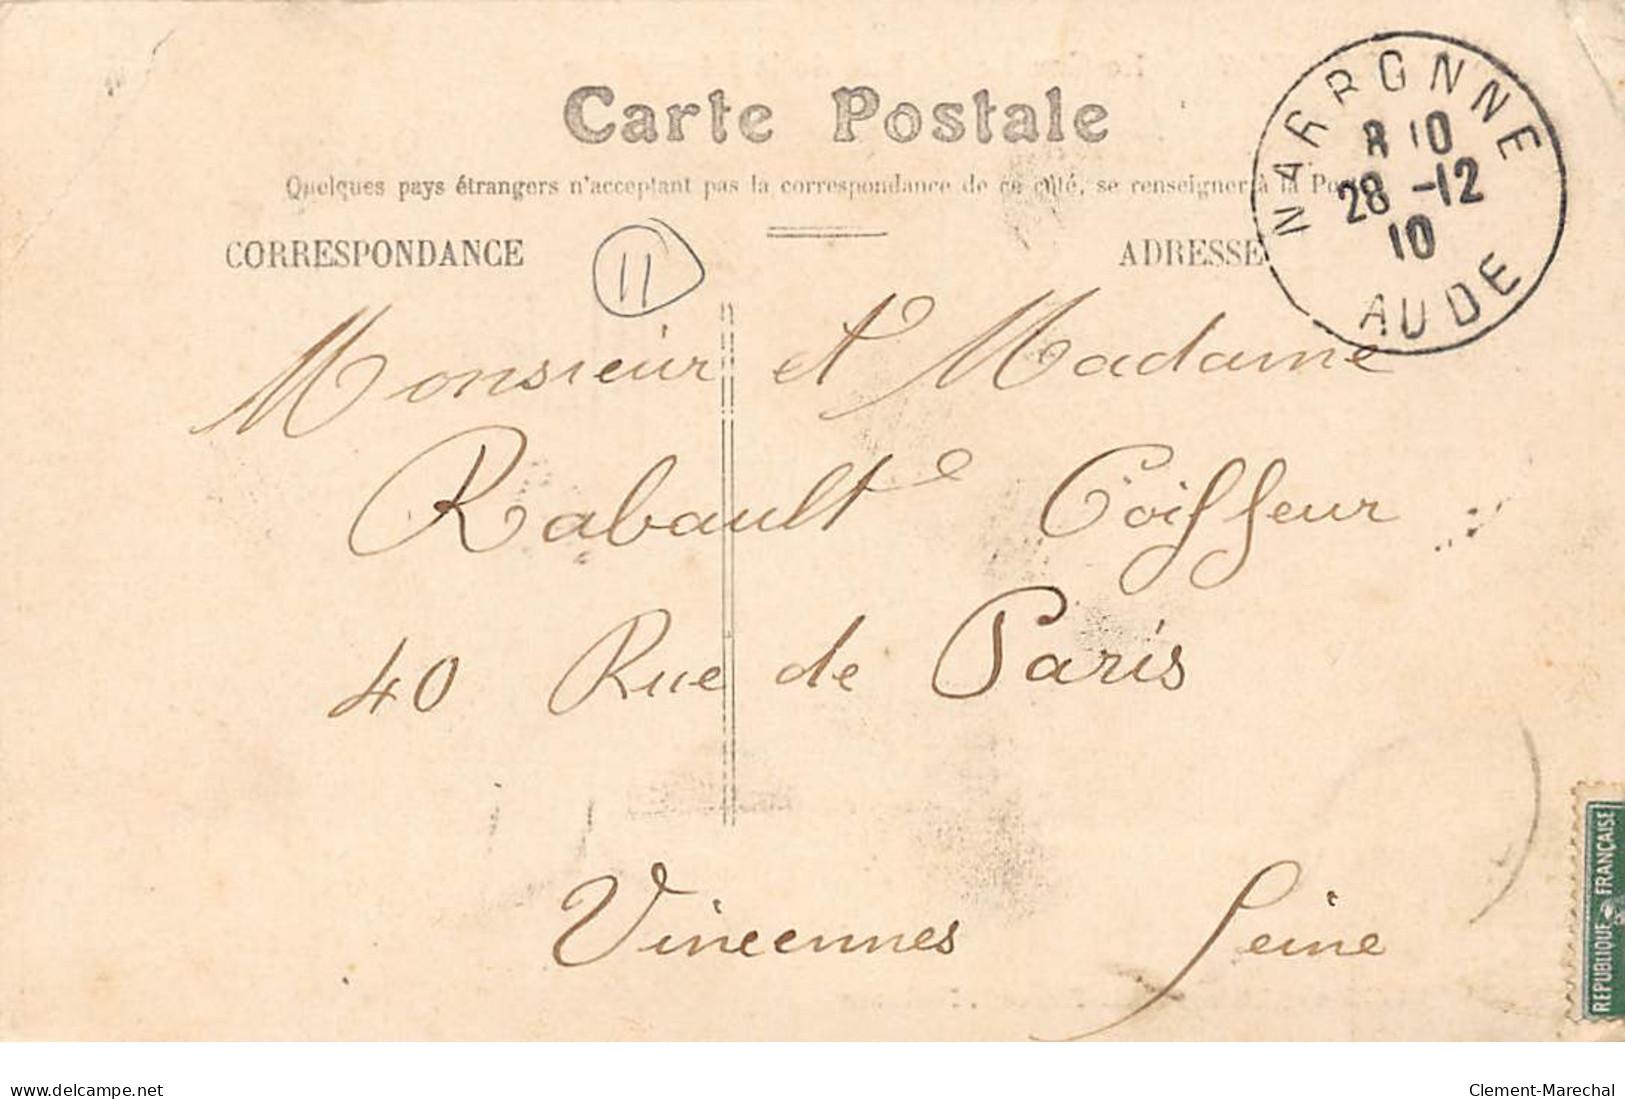 Carte Postale
Quelques pays étrangers n'acceptant pas la correspondance de ce côté, se renseigner à la
CORRESPONDANCE
11
ADRESSE
NARBONNE
8 10
28 -12
10
AUDE
Monsieur et Madame
Rabault Coiffeur
40 Rue de Paris
Vincennes Seine
REPUBLIQUE FRANÇAISE
www.delcampe.net
Clement-Marechal